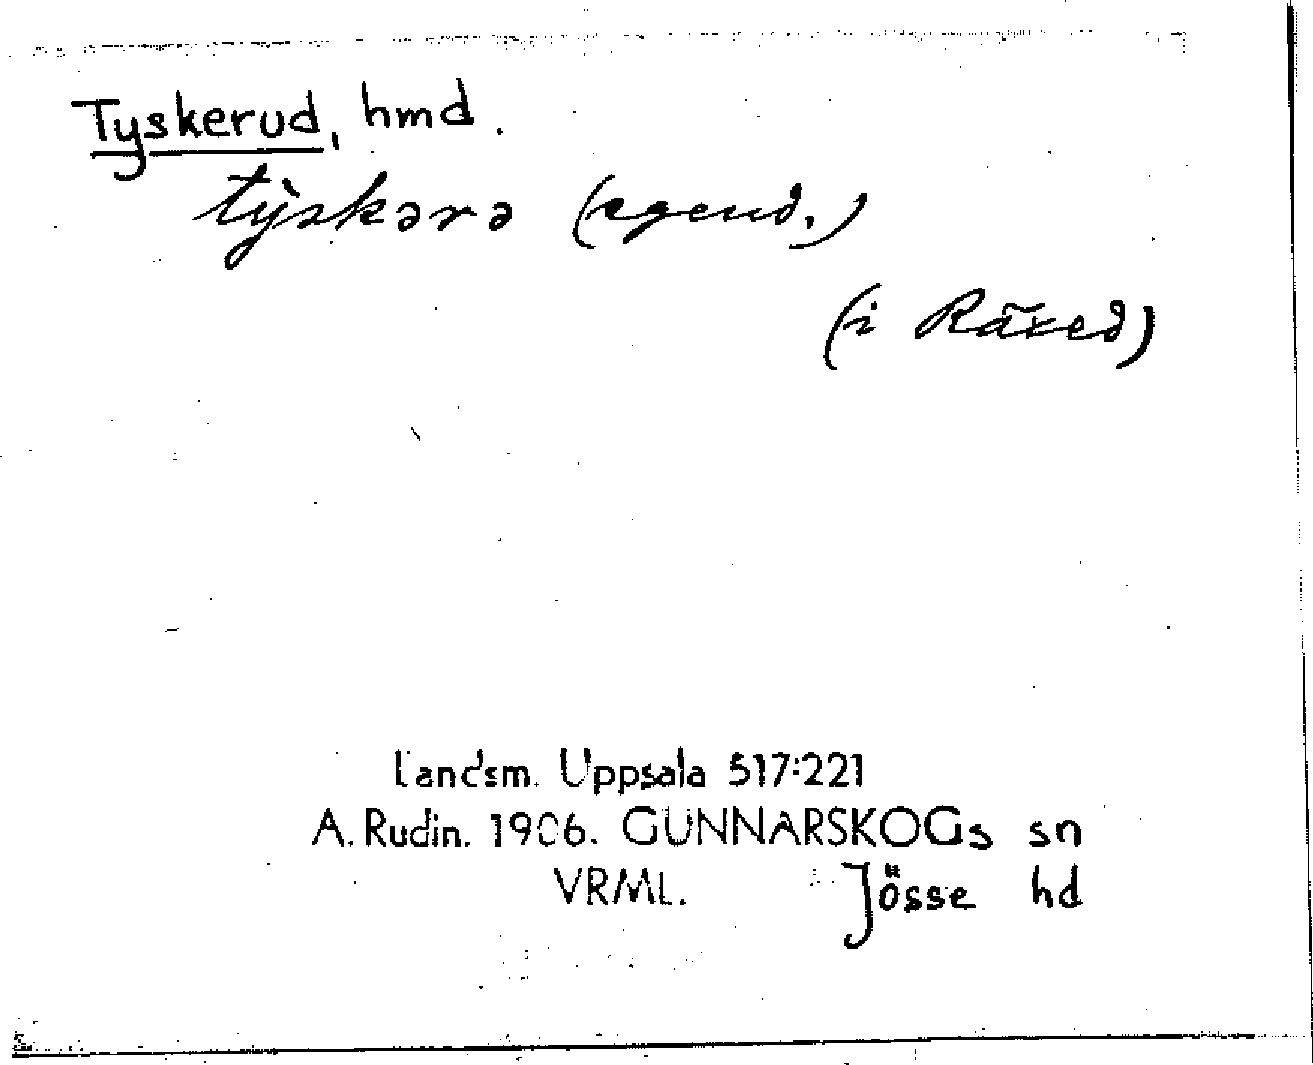 Tyskerud, hmd.
tỳskərə (egend.)
(i Räxed)
Landsm. Uppsala 517:221
A. Rudin. 1906. GUNNARSKOGs sn
VRML. Jösse hd